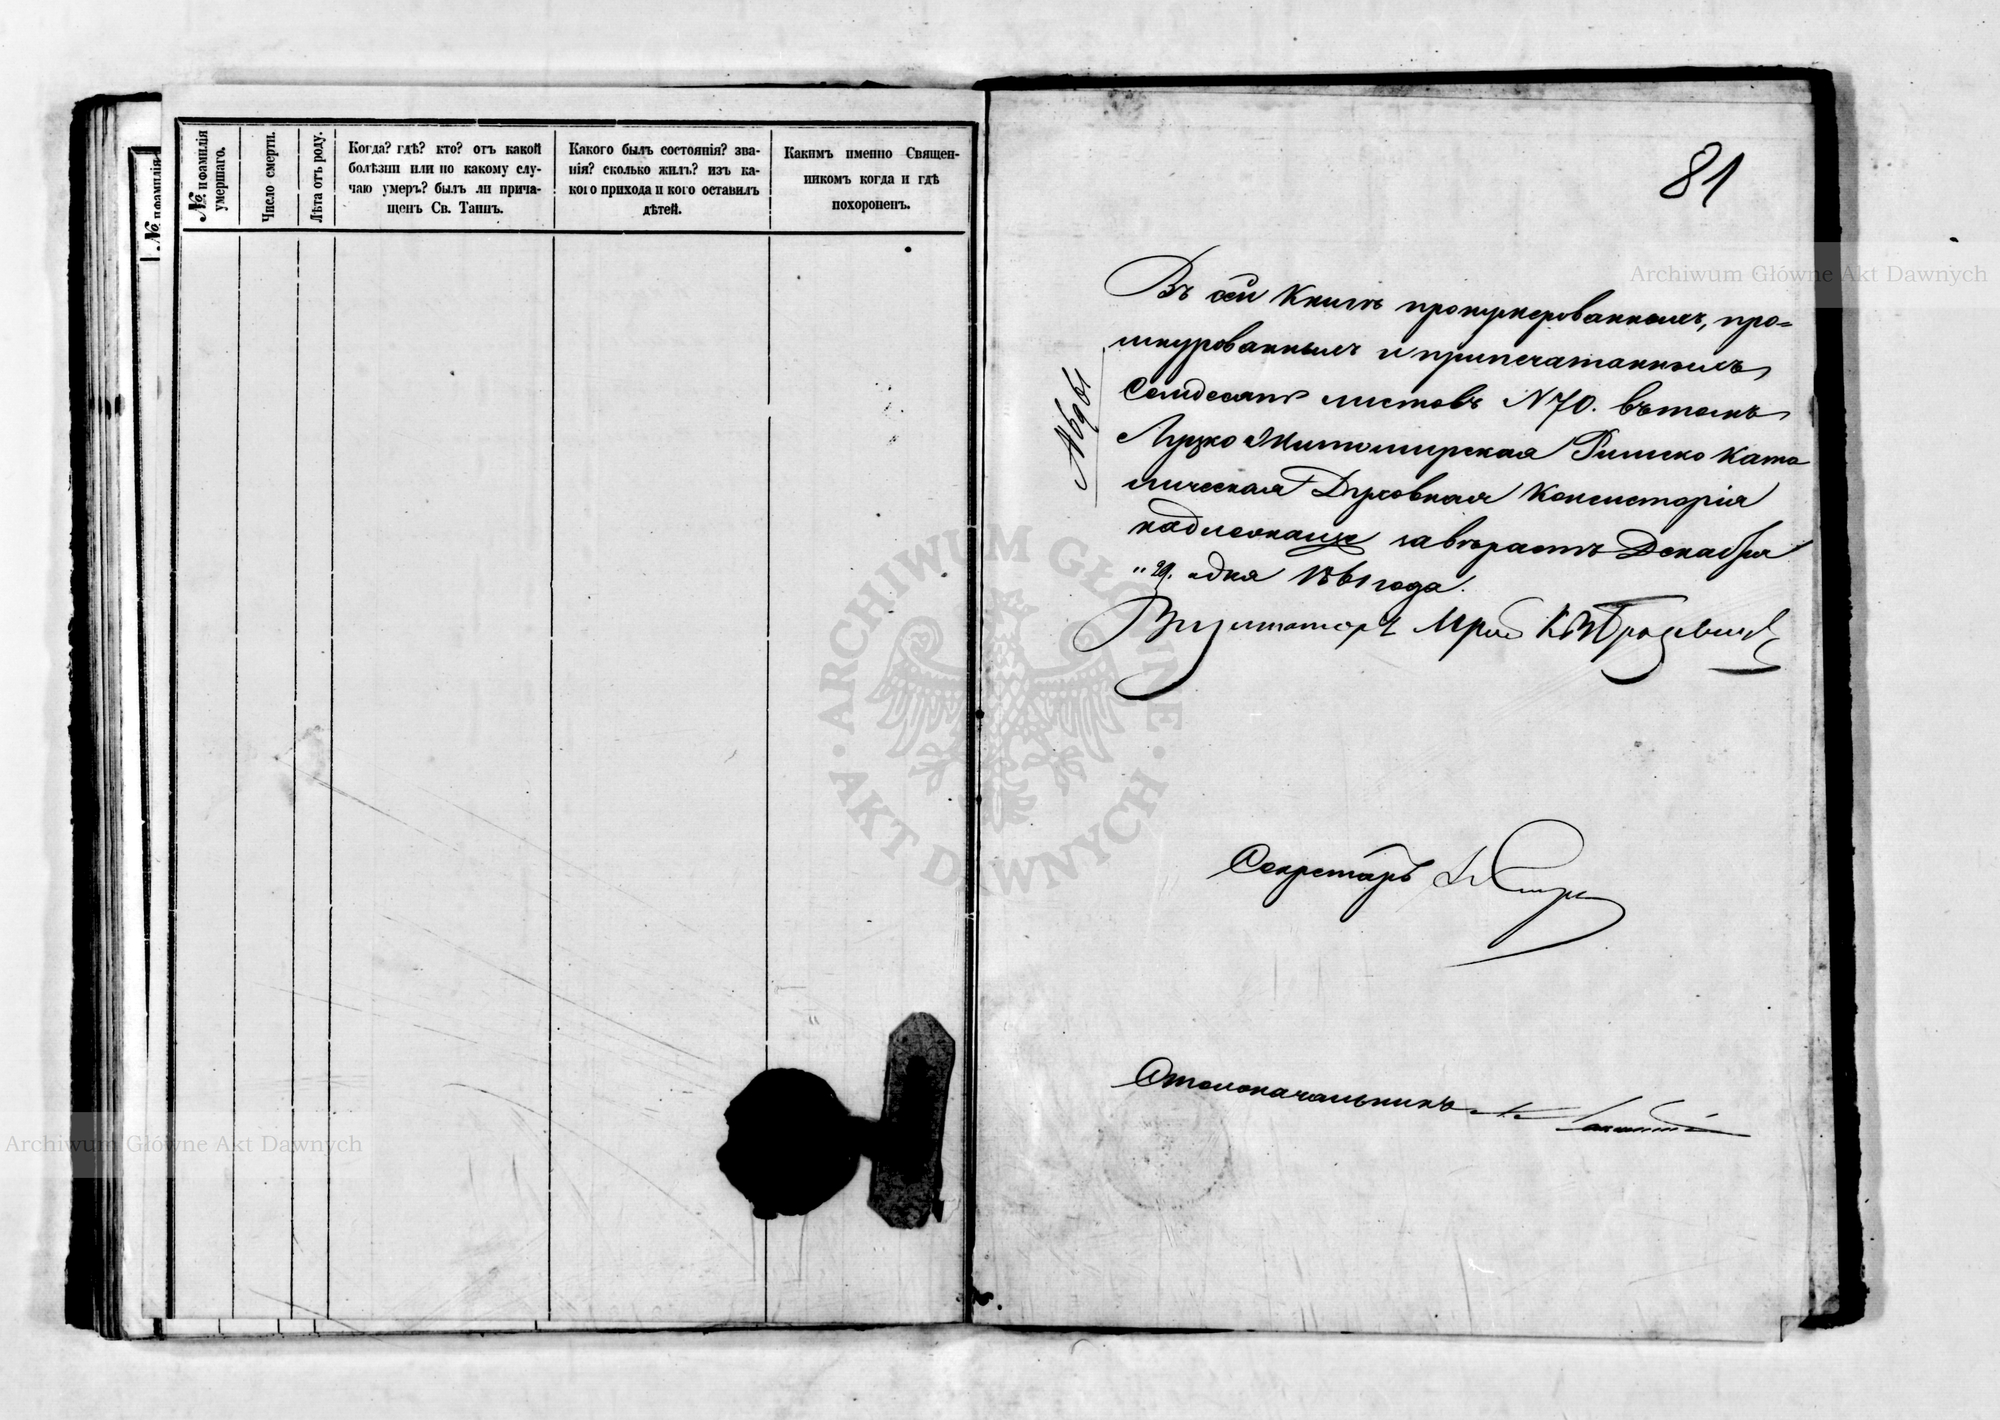 № и фамилія
№ и фамилія
умершаго.
Число смерти.
Лѣта отъ роду.
Когда? гдѣ? кто? отъ какой
болѣзни или по какому слу-
чаю умеръ? былъ ли прича-
щенъ Св. Таинъ.
Какого былъ состоянія? зва-
нія? сколько жилъ? изъ ка-
кого прихода и кого оставилъ
дѣтей.
Какимъ именно Священ-
никомъ когда и гдѣ
похороненъ.
81
Въ сей Книгѣ пронумерованныхъ, про=
шнурованныхъ и припечатанныхъ
Семдесятъ листовъ N 70. въ томъ
Луцко Житомирская Римско Като
лическая Духовная Консисторія
надлежаще завѣряетъ Декабря
"29. дня 1861 года.
Визитаторъ
Секретарь
Столоначальникъ
Archiwum Główne Akt Dawnych
ARCHIWUM GŁÓWNE · AKT DAWNYCH ·
Archiwum Główne Akt Dawnych